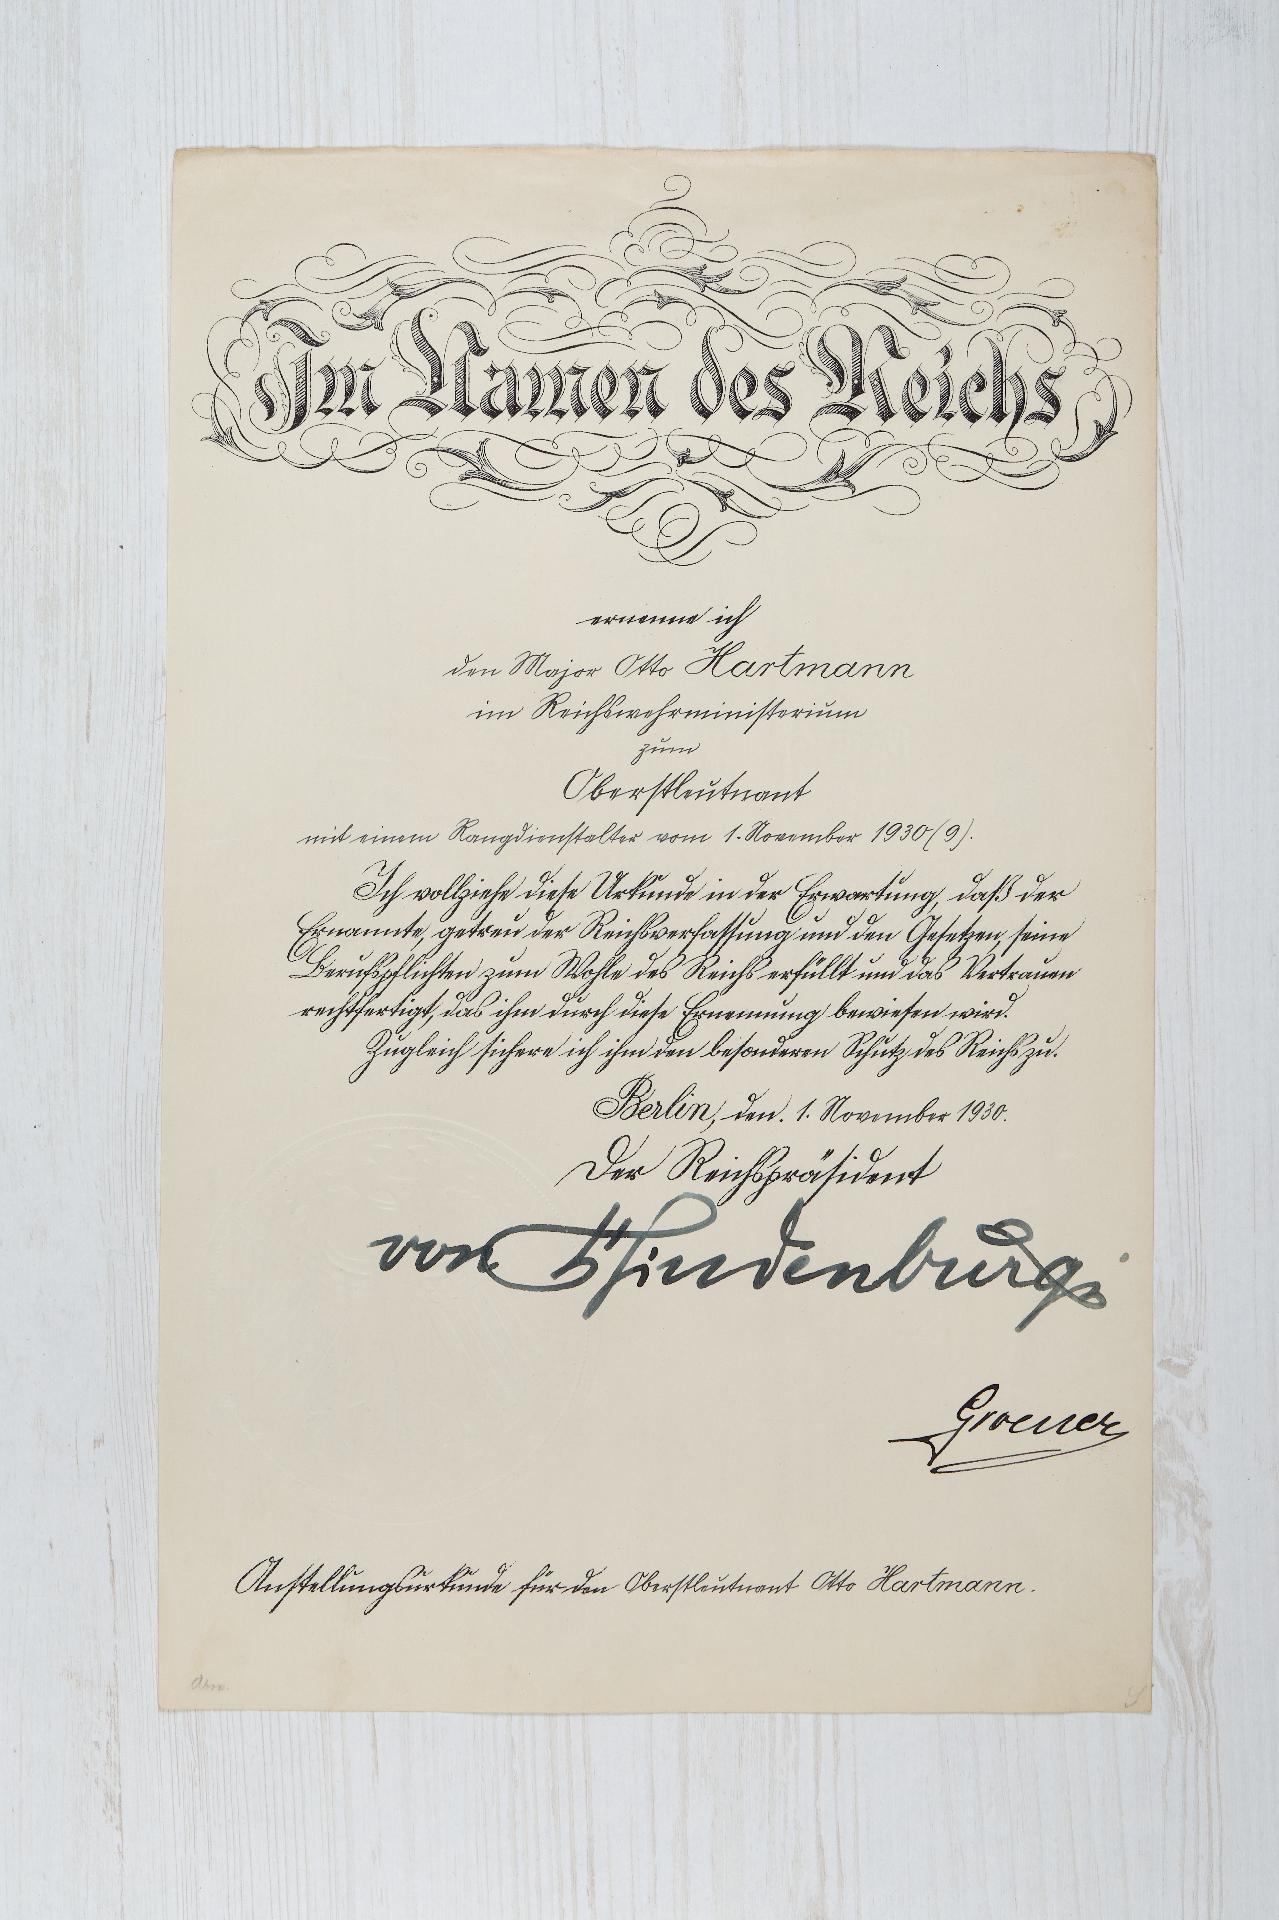 Im Namen des Reichs
ernenne ich
den Major Otto Hartmann
im Reichswehrministerium
zum
Oberstleutnant
mit einem Rangdienstalter vom 1. November 1930 (9).
Ich vollziehe diese Urkunde in der Erwartung, daß der
Ernannte, getreu der Reichsverfassung und den Gesetzen, seine
Berufspflichten zum Wohle des Reichs erfüllt und das Vertrauen
rechtfertigt, das ihm durch diese Ernennung bewiesen wird.
Zugleich sichere ich ihm den besonderen Schutz des Reichs zu.
Berlin, den. 1. November 1930.
Der Reichspräsident
von Hindenburg
Groener
Anstellungsurkunde für den Oberstleutnant Otto Hartmann.